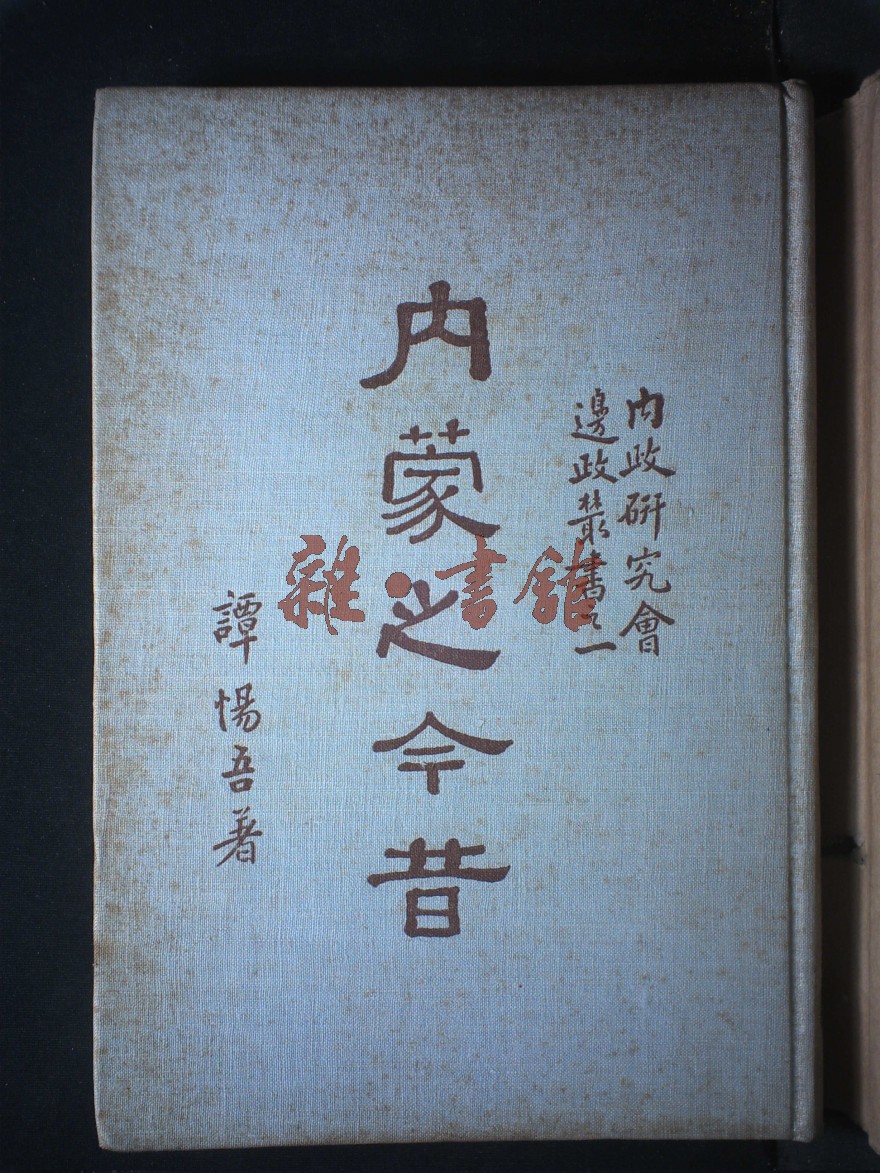 內政研究會
邊政叢書之一
內蒙之今昔
譚惕吾著
雜·書館